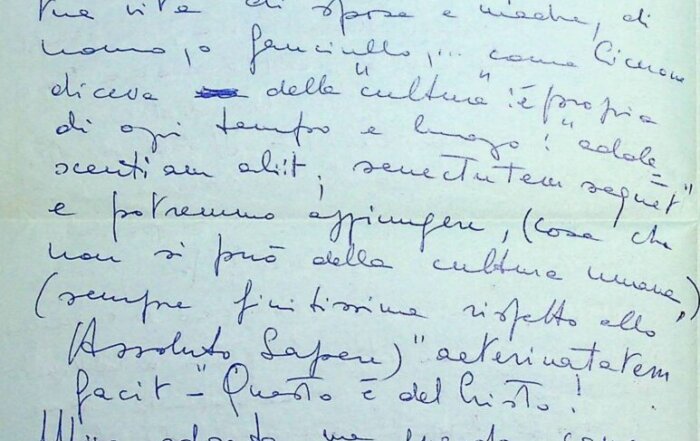 tua vita di sposa e madre, di
nonno, o fanciullo,... come Cicerone
diceva della "cultura": è propria
di ogni tempo e luogo: "adole
scentiam alit, senectutem seguet"
e potremmo aggiungere, (cosa che
non si può della cultura umana,)
(sempre finitissima rispetto allo
Assoluto Sapere) "aeterinatatem
facit" - Questo è del Cristo!